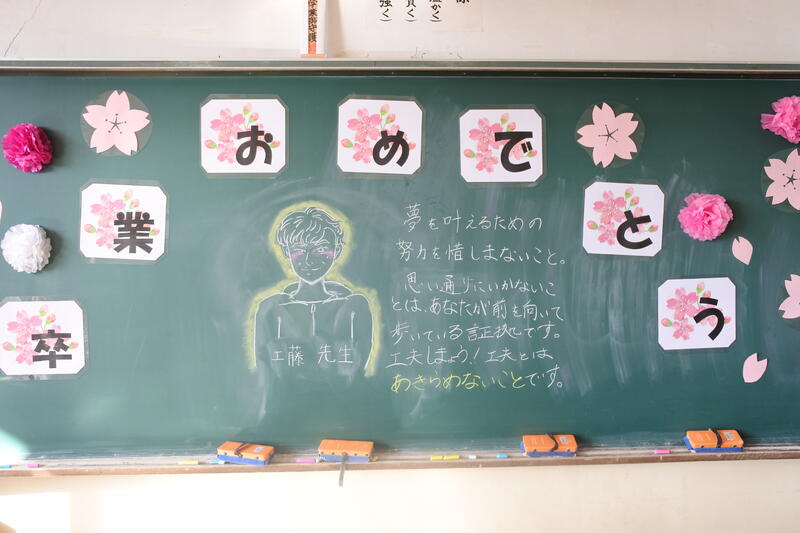 卒業おめでとう
夢を叶えるための
努力を惜しまないこと。
思い通りにいかないこ
とは、あなたが前を向いて
歩いている証拠です。
工夫しましょう！工夫とは
あきらめないことです。
工藤 先生